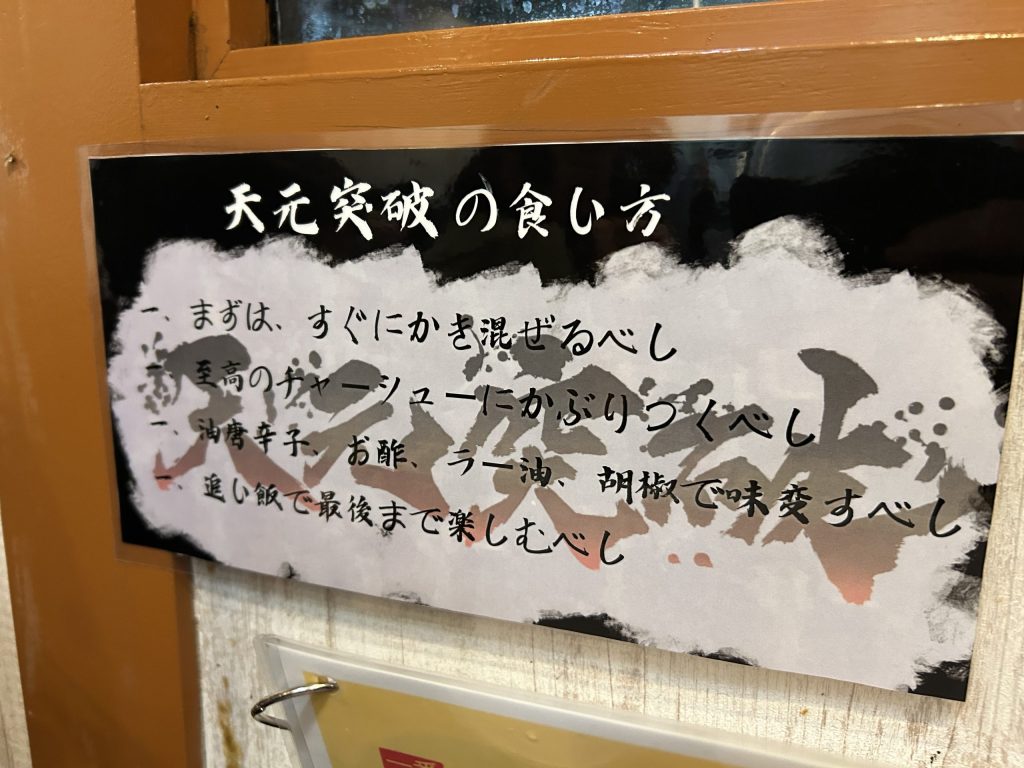 天元突破の食い方
一、まずは、すぐにかき混ぜるべし
一、至高のチャーシューにかぶりつくべし
一、油唐辛子、お酢、ラー油、胡椒で味変すべし
一、追い飯で最後まで楽しむべし